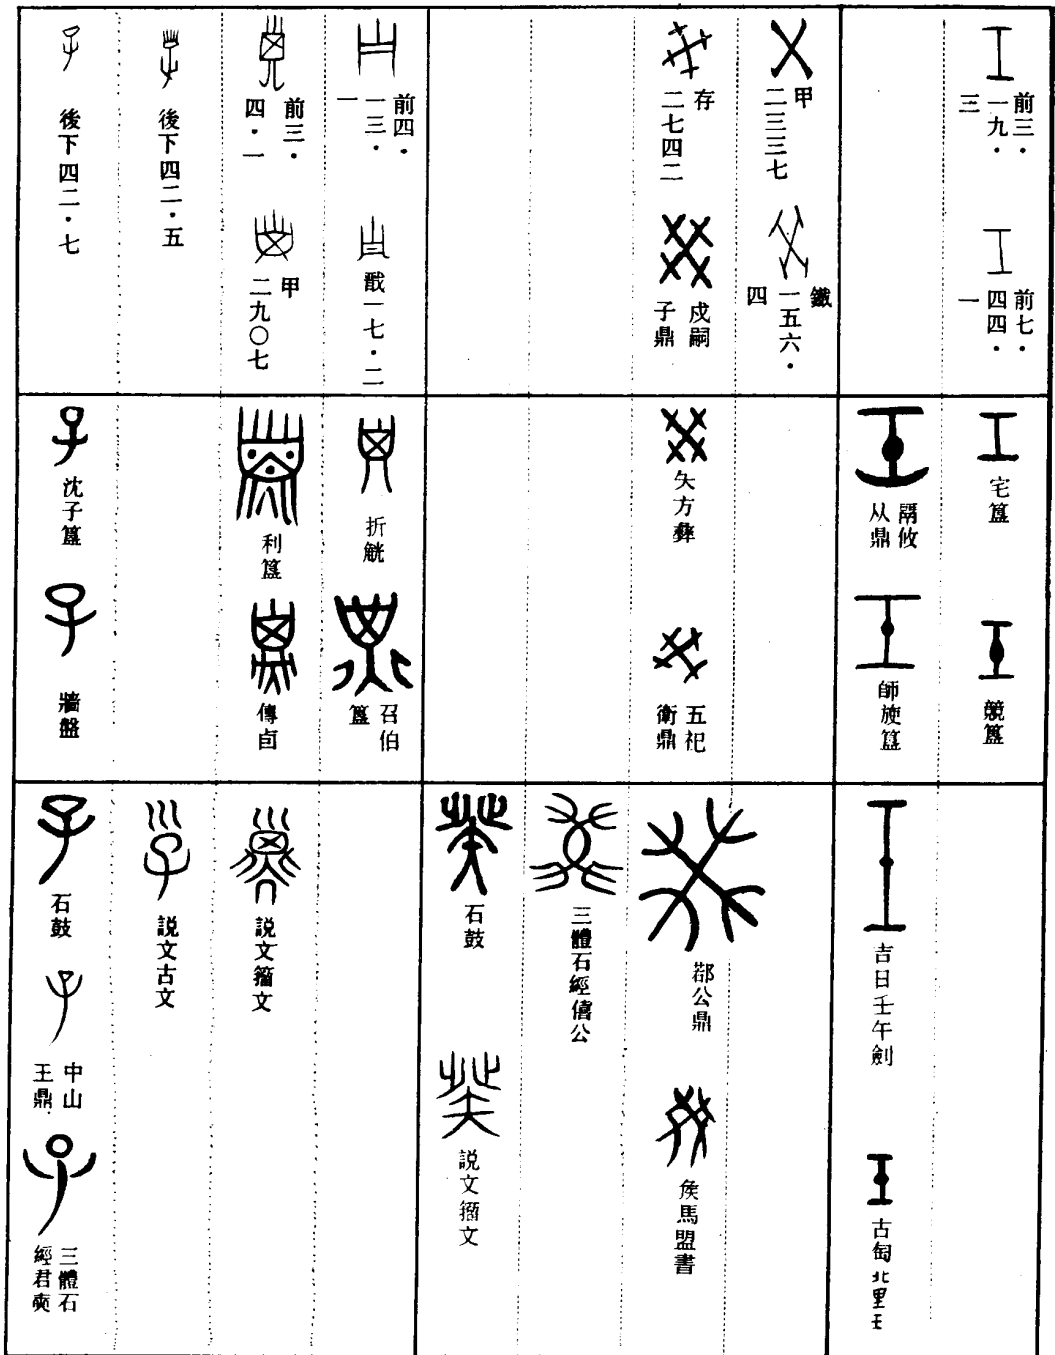 前三·一九·三
前七·四四·一
甲二三三七
鐵一五六·四
存二七四二
戍嗣子鼎
前四·一三·一
戩一七·二
前三·四·一
甲二九〇七
後下四二·五
後下四二·七
宅簋
競簋
鬲攸从鼎
師旋簋
矢方彝
五祀衛鼎
折觥
召伯簋
利簋
傳卣
沈子簋
牆盤
吉日壬午劍
古匋北里壬
鄀公鼎
侯馬盟書
三體石經僖公
石鼓
説文籀文
説文籀文
説文古文
石鼓
中山王鼎
三體石經君奭